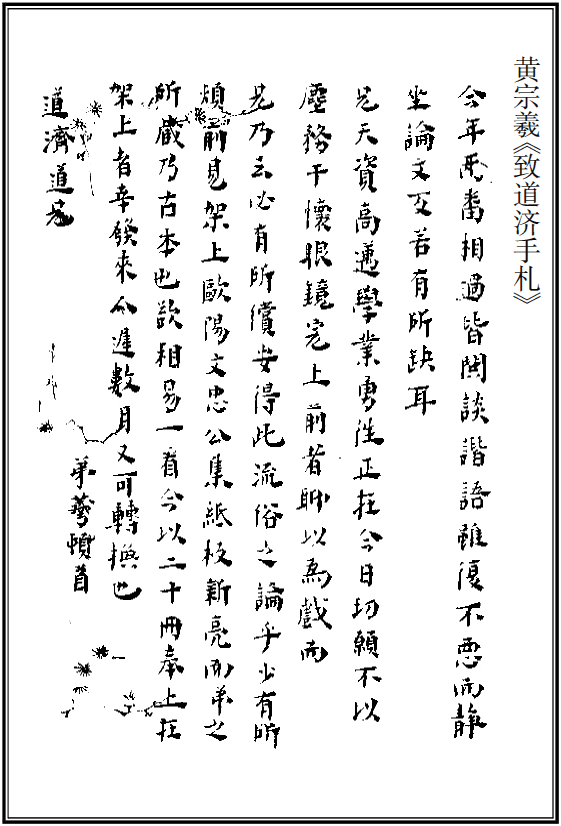 黄宗羲《致道济手札》
今年两番相過皆閒談諧語雖復不惡而静
坐論文又若有所缺耳
兄天資高邁學業勇往正在今日切願不以
塵務干懷眼鏡完上前者聊以為戲而
兄乃云必有所償安得此流俗之論乎少有所
煩前見架上歐陽文忠公集紙板新亮而弟之
所藏乃古本也欲相易一看今以二十冊奉上在
架上者幸發來如遲數月又可轉換也
弟羲頓首
道濟道兄